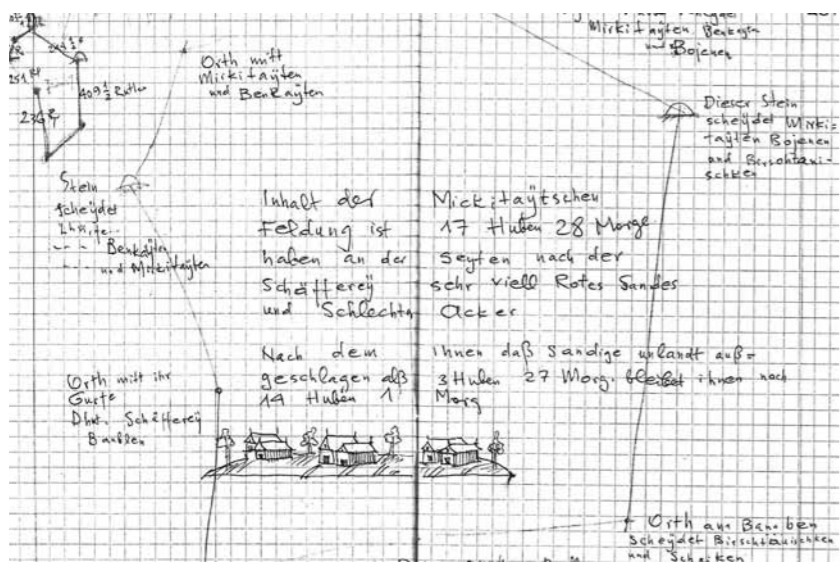 251 R
409 1/2 Ruthen
236 R
Orth mitt
Mirkitaÿten
und Benkaÿten
Mirkitaÿten Benkaÿten
und Bojenen
Dieser Stein
scheÿdet Mirki-
taÿten Bojenen
und Birschtani-
schken
Stein
scheÿdet
Benkaÿten
und Mirkitaÿten
Inhalt der Mickitaÿtschen
Feldung ist 17 Huben 28 Morge
haben an der Seyten nach der
Schäffereÿ sehr viell Rotes Sandes
und Schlechten Acker
Nach dem Ihnen daß Sandige unlandt auß=
geschlagen alß 3 Huben 27 Morg. bleibet ihnen noch
14 Huben 1 Morg
Orth mitt ihr
Schäfferey
Orth am
scheÿdet Birschtanischken
und